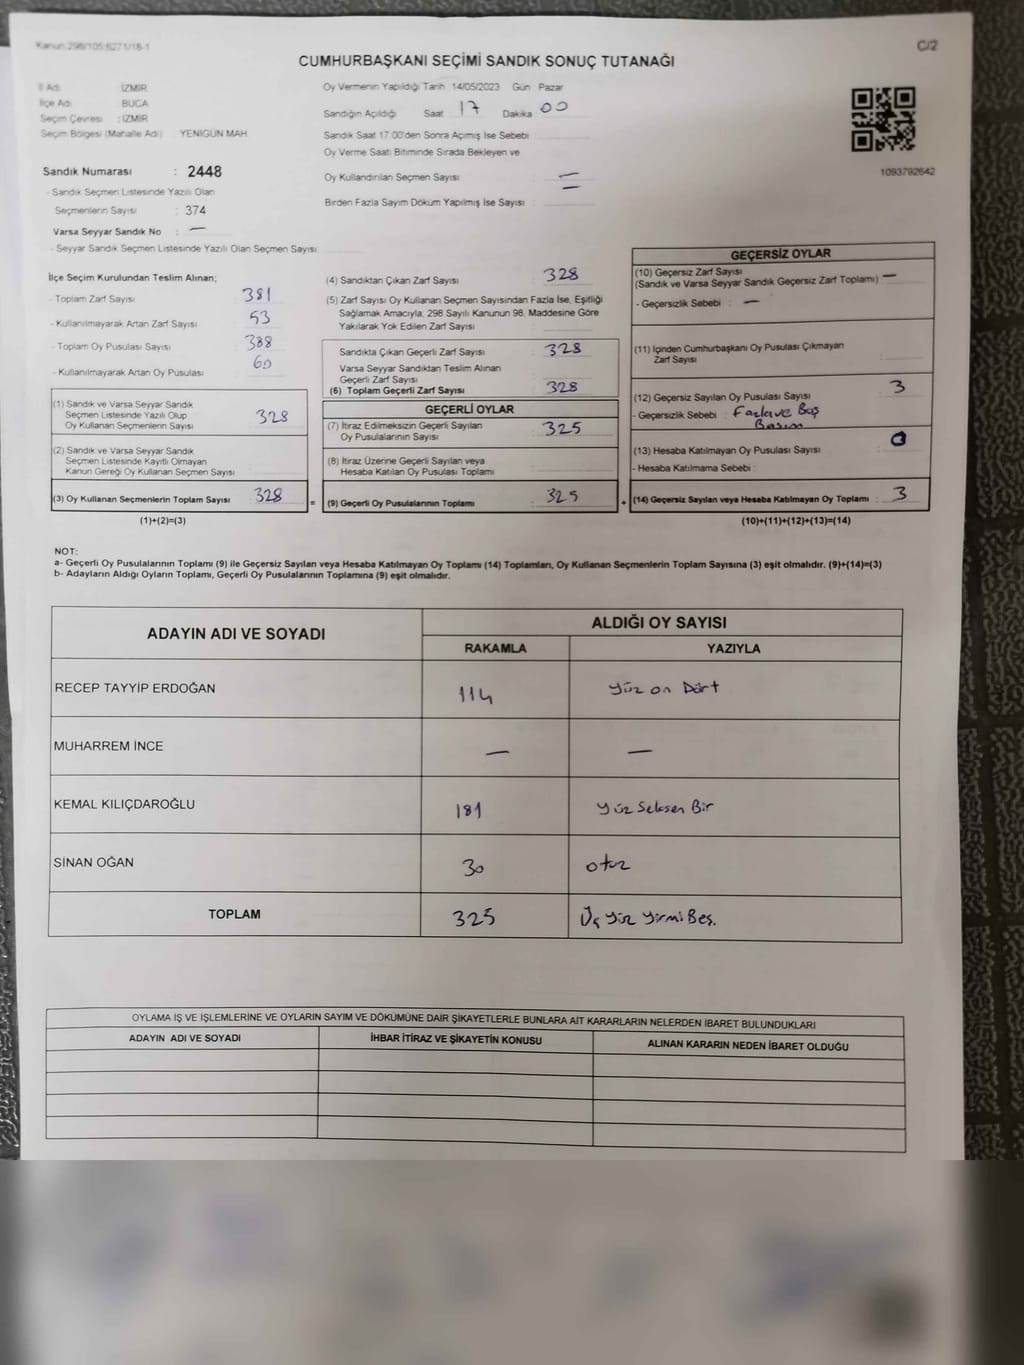 Kanun:298/105:6271/18-1
C/2
CUMHURBAŞKANI SEÇİMİ SANDIK SONUÇ TUTANAĞI
İl Adı : İZMİR
İlçe Adı : BUCA
Seçim Çevresi : İZMİR
Seçim Bölgesi (Mahalle Adı) : YENİGÜN MAH.
Sandık Numarası : 2448
- Sandık Seçmen Listesinde Yazılı Olan
Seçmenlerin Sayısı : 374
Varsa Seyyar Sandık No : —
- Seyyar Sandık Seçmen Listesinde Yazılı Olan Seçmen Sayısı:
Oy Vermenin Yapıldığı Tarih 14/05/2023 Gün Pazar
Sandığın Açıldığı Saat 17 Dakika 00
Sandık Saat 17.00'den Sonra Açımış İse Sebebi
Oy Verme Saati Bitiminde Sırada Bekleyen ve
Oy Kullandırılan Seçmen Sayısı : —
Birden Fazla Sayım Döküm Yapılmış İse Sayısı : —
1093792642
İlçe Seçim Kurulundan Teslim Alınan;
- Toplam Zarf Sayısı : 381
- Kullanılmayarak Artan Zarf Sayısı : 53
- Toplam Oy Pusulası Sayısı : 388
- Kullanılmayarak Artan Oy Pusulası : 60
(1) Sandık ve Varsa Seyyar Sandık
Seçmen Listesinde Yazılı Olup
Oy Kullanan Seçmenlerin Sayısı : 328
(2) Sandık ve Varsa Seyyar Sandık
Seçmen Listesinde Kayıtlı Olmayan
Kanun Gereği Oy Kullanan Seçmen Sayısı :
(3) Oy Kullanan Seçmenlerin Toplam Sayısı : 328 =
(1)+(2)=(3)
(4) Sandıktan Çıkan Zarf Sayısı : 328
(5) Zarf Sayısı Oy Kullanan Seçmen Sayısından Fazla İse, Eşitliği
Sağlamak Amacıyla, 298 Sayılı Kanunun 98. Maddesine Göre
Yakılarak Yok Edilen Zarf Sayısı :
Sandıkta Çıkan Geçerli Zarf Sayısı : 328
Varsa Seyyar Sandıktan Teslim Alınan
Geçerli Zarf Sayısı
(6) Toplam Geçerli Zarf Sayısı : 328
GEÇERLİ OYLAR
(7) İtiraz Edilmeksizin Geçerli Sayılan
Oy Pusulalarının Sayısı : 325
(8) İtiraz Üzerine Geçerli Sayılan veya
Hesaba Katılan Oy Pusulası Toplamı :
(9) Geçerli Oy Pusulalarının Toplamı : 325 +
GEÇERSİZ OYLAR
(10) Geçersiz Zarf Sayısı
(Sandık ve Varsa Seyyar Sandık Geçersiz Zarf Toplamı) : —
- Geçersizlik Sebebi : —
(11) İçinden Cumhurbaşkanı Oy Pusulası Çıkmayan
Zarf Sayısı :
(12) Geçersiz Sayılan Oy Pusulası Sayısı : 3
- Geçersizlik Sebebi : Fazla ve Boş
Basım
(13) Hesaba Katılmayan Oy Pusulası Sayısı : 0
- Hesaba Katılmama Sebebi :
(14) Geçersiz Sayılan veya Hesaba Katılmayan Oy Toplamı : 3
(10)+(11)+(12)+(13)=(14)
NOT:
a- Geçerli Oy Pusulalarının Toplamı (9) ile Geçersiz Sayılan veya Hesaba Katılmayan Oy Toplamı (14) Toplamları, Oy Kullanan Seçmenlerin Toplam Sayısına (3) eşit olmalıdır. (9)+(14)=(3)
b- Adayların Aldığı Oyların Toplamı, Geçerli Oy Pusulalarının Toplamına (9) eşit olmalıdır.
ADAYIN ADI VE SOYADI
ALDIĞI OY SAYISI
RAKAMLA YAZIYLA
RECEP TAYYİP ERDOĞAN 114 Yüz on Dört
MUHARREM İNCE — —
KEMAL KILIÇDAROĞLU 181 Yüz Seksen Bir
SİNAN OĞAN 30 otuz
TOPLAM 325 Üç Yüz Yirmi Beş.
OYLAMA İŞ VE İŞLEMLERİNE VE OYLARIN SAYIM VE DÖKÜMÜNE DAİR ŞİKAYETLERLE BUNLARA AİT KARARLARIN NELERDEN İBARET BULUNDUKLARI
ADAYIN ADI VE SOYADI İHBAR İTİRAZ VE ŞİKAYETİN KONUSU ALINAN KARARIN NEDEN İBARET OLDUĞU